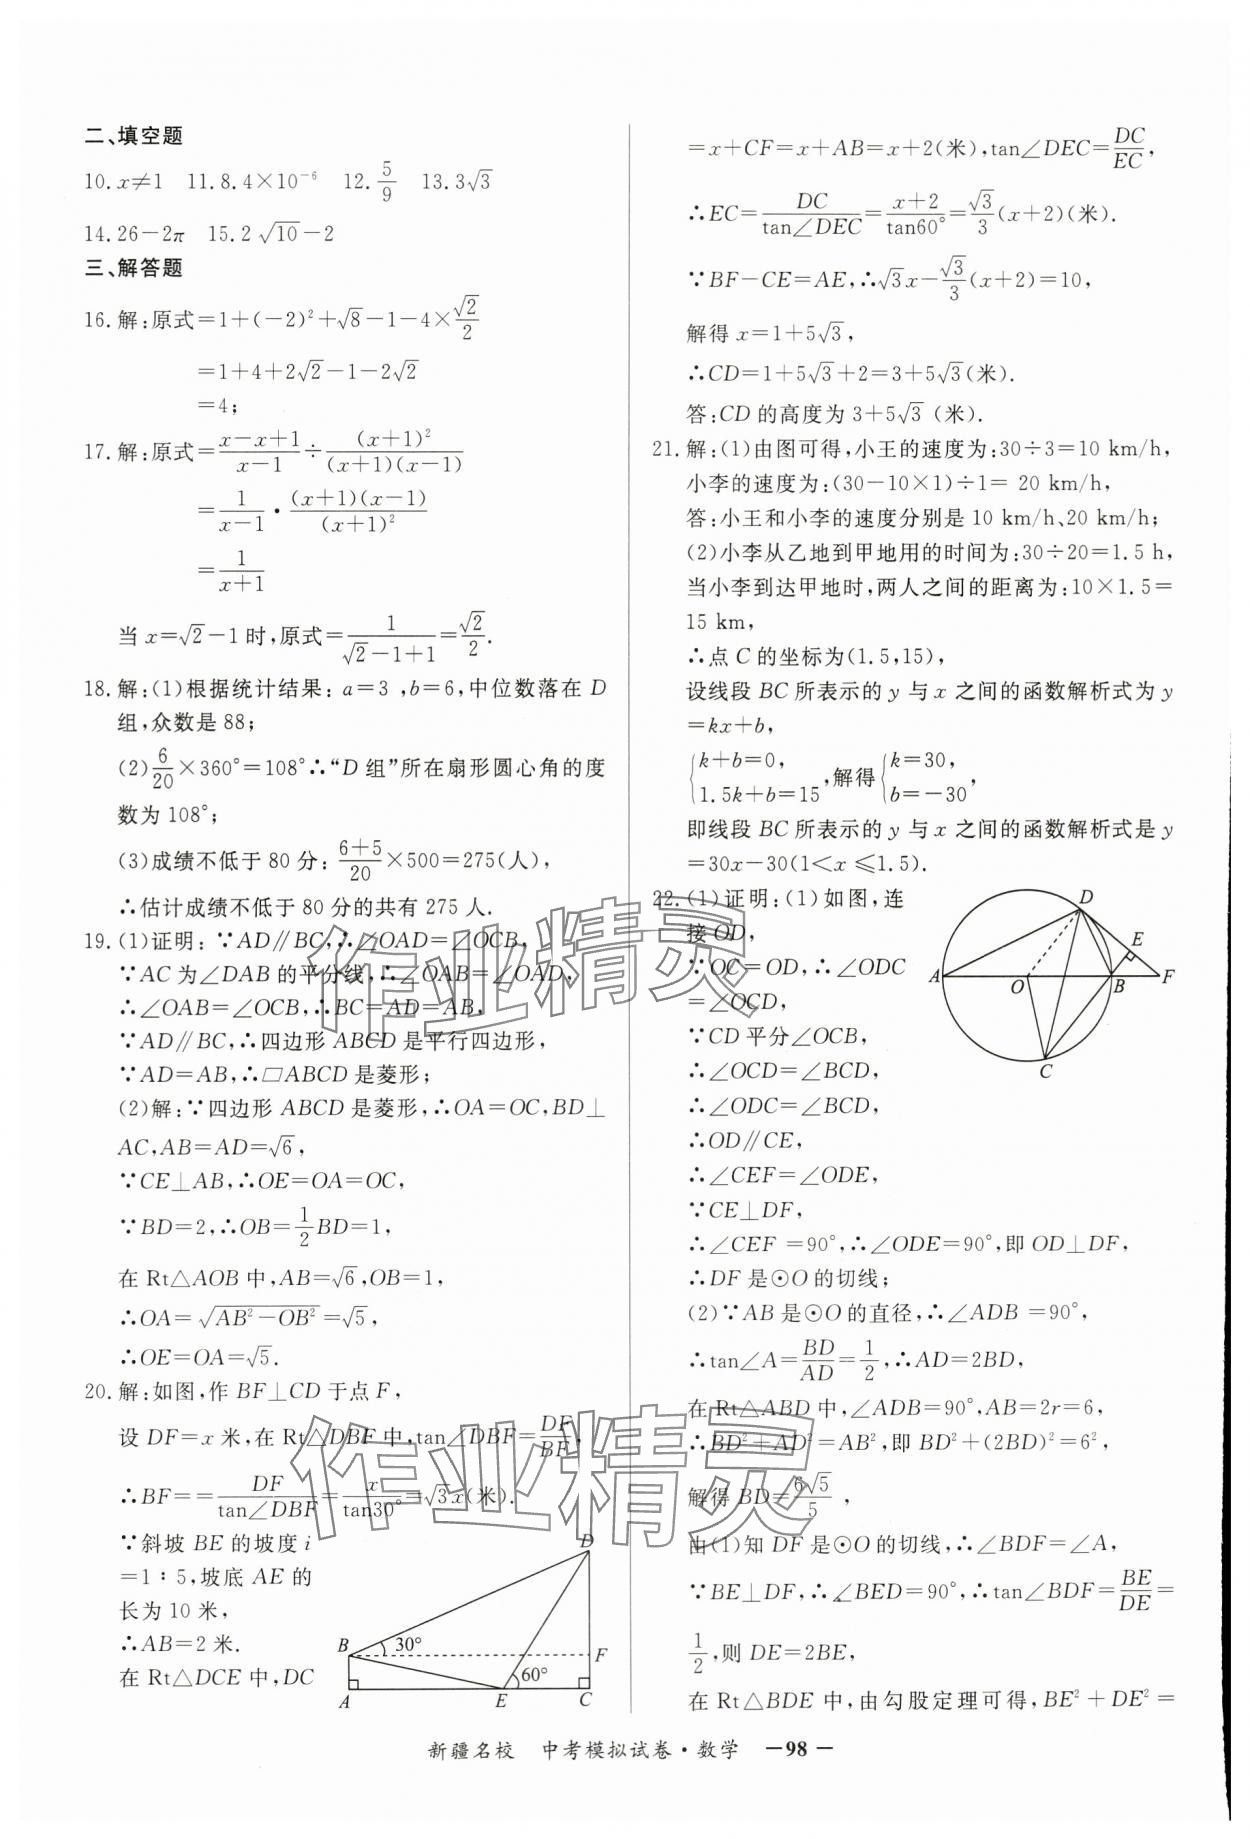 二、填空题
10.x≠1 11.8.4×10⁻⁶ 12.5/9 13.3√3
14.26-2π 15.2√10-2
三、解答题
16.解:原式=1+(-2)²+√8-1-4×√2/2
=1+4+2√2-1-2√2
=4;
17.解:原式=(x-x+1)/(x-1)÷(x+1)²/((x+1)(x-1))
=1/(x-1)·((x+1)(x-1))/(x+1)²
=1/(x+1)
当x=√2-1时,原式=1/(√2-1+1)=√2/2.
18.解:(1)根据统计结果: a=3 ,b=6,中位数落在 D
组,众数是88;
(2)6/20×360°=108°∴“D组”所在扇形圆心角的度
数为108°;
(3)成绩不低于80分:(6+5)/20×500=275(人),
∴估计成绩不低于80分的共有275人.
19.(1)证明: ∵AD∥BC,∴∠OAD=∠OCB,
∵AC为∠DAB的平分线,∴∠OAB=∠OAD,
∴∠OAB=∠OCB,∴BC=AD=AB,
∵AD∥BC,∴四边形ABCD是平行四边形,
∵AD=AB,∴□ABCD是菱形;
(2)解:∵四边形ABCD是菱形,∴OA=OC,BD⊥
AC,AB=AD=√6,
∵CE⊥AB,∴OE=OA=OC,
∵BD=2,∴OB=1/2BD=1,
在Rt△AOB中,AB=√6,OB=1,
∴OA=√(AB²-OB²)=√5,
∴OE=OA=√5.
20.解:如图,作BF⊥CD于点F,
设DF=x米,在Rt△DBF中,tan∠DBF=DF/BF,
∴BF==DF/tan∠DBF=x/tan30°=√3x(米).
∵斜坡BE的坡度i
=1∶5,坡底AE的
长为10米,
∴AB=2米.
在Rt△DCE中,DC
D
B
30°
F
60°
A
E
C
=x+CF=x+AB=x+2(米),tan∠DEC=DC/EC,
∴EC=DC/tan∠DEC=(x+2)/tan60°=√3/3(x+2)(米).
∵BF-CE=AE,∴√3x-√3/3(x+2)=10,
解得x=1+5√3,
∴CD=1+5√3+2=3+5√3(米).
答:CD的高度为3+5√3(米).
21.解:(1)由图可得,小王的速度为:30÷3=10 km/h,
小李的速度为:(30-10×1)÷1= 20 km/h,
答:小王和小李的速度分别是10 km/h、20 km/h;
(2)小李从乙地到甲地用的时间为:30÷20=1.5 h,
当小李到达甲地时,两人之间的距离为:10×1.5=
15 km,
∴点C的坐标为(1.5,15),
设线段BC所表示的y与x之间的函数解析式为y
=kx+b,
{k+b=0, 1.5k+b=15,解得{k=30, b=-30,
即线段BC所表示的y与x之间的函数解析式是y
=30x-30(1<x≤1.5).
22.(1)证明:(1)如图,连
接OD,
∵OC=OD,∴∠ODC
=∠OCD,
∵CD平分∠OCB,
∴∠OCD=∠BCD,
∴∠ODC=∠BCD,
∴OD∥CE,
∴∠CEF=∠ODE,
∵CE⊥DF,
∴∠CEF =90°,∴∠ODE=90°,即OD⊥DF,
∴DF是⊙O的切线;
D
E
A
O
B
F
C
(2)∵AB是⊙O的直径,∴∠ADB =90°,
∴tan∠A=BD/AD=1/2,∴AD=2BD,
在Rt△ABD中,∠ADB=90°,AB=2r=6,
∴BD²+AD²=AB²,即BD²+(2BD)²=6²,
解得BD=6√5/5,
由(1)知DF是⊙O的切线,∴∠BDF=∠A,
∵BE⊥DF,∴∠BED=90°,∴tan∠BDF=BE/DE=
1/2,则DE=2BE,
在Rt△BDE中,由勾股定理可得,BE²+DE²=
新疆名校 中考模拟试卷·数学 —98—
作业精灵
作业精灵